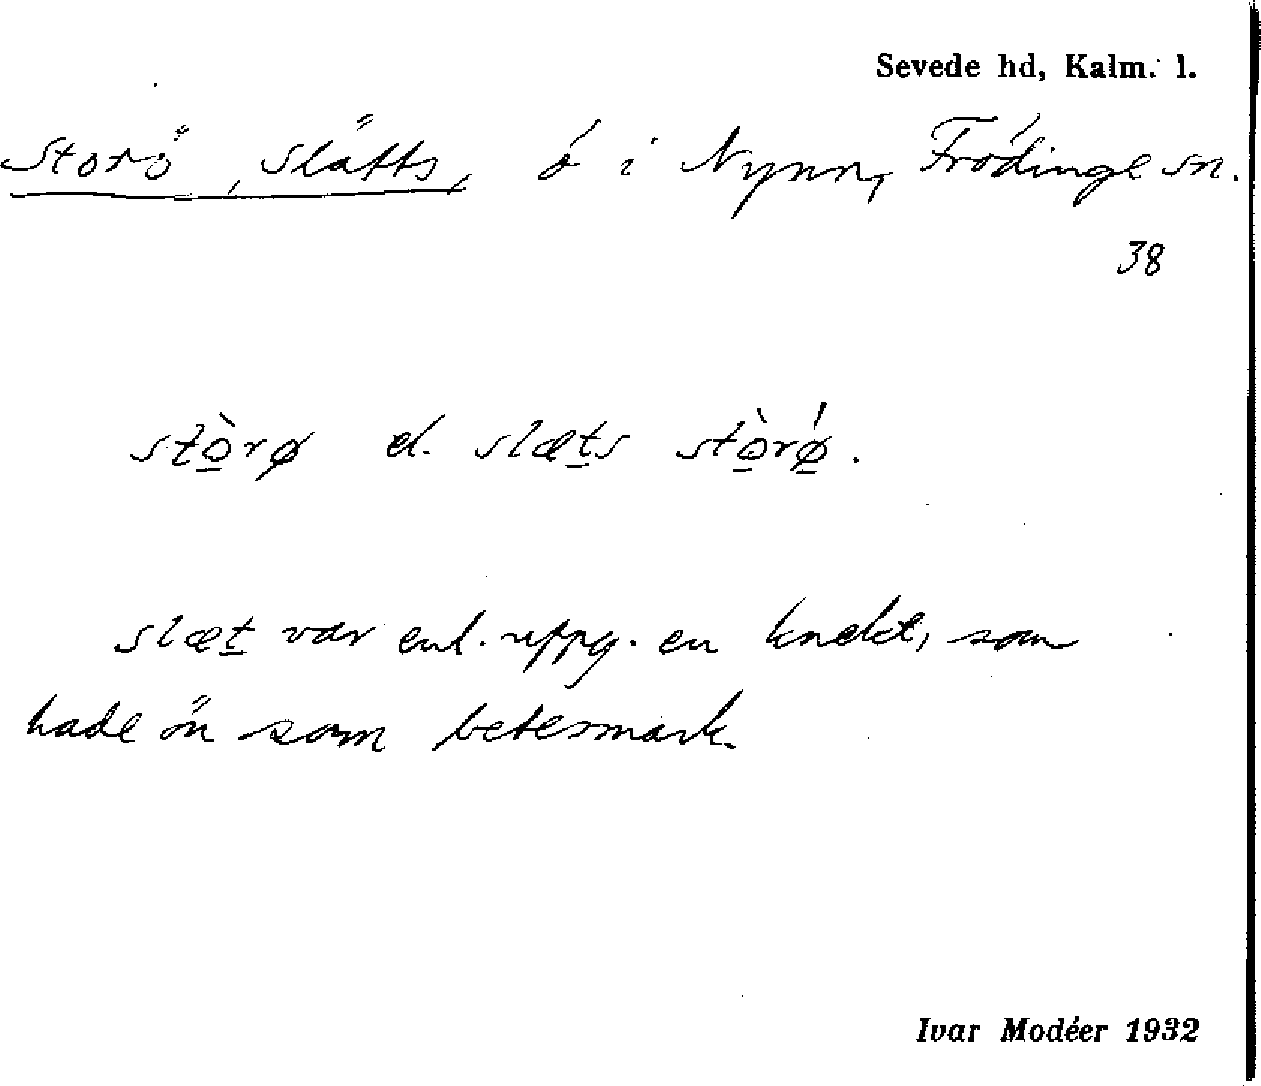 Sevede hd, Kalm. l.
Storö, Slätts, ö i Nynn, Frödinge sn.
38
stò̲rø el. slæt̲s stò̲rǿ̲.
slæt̲ var enl. uppg. en knekt, som
hade ön som betesmark.
Ivar Modéer 1932